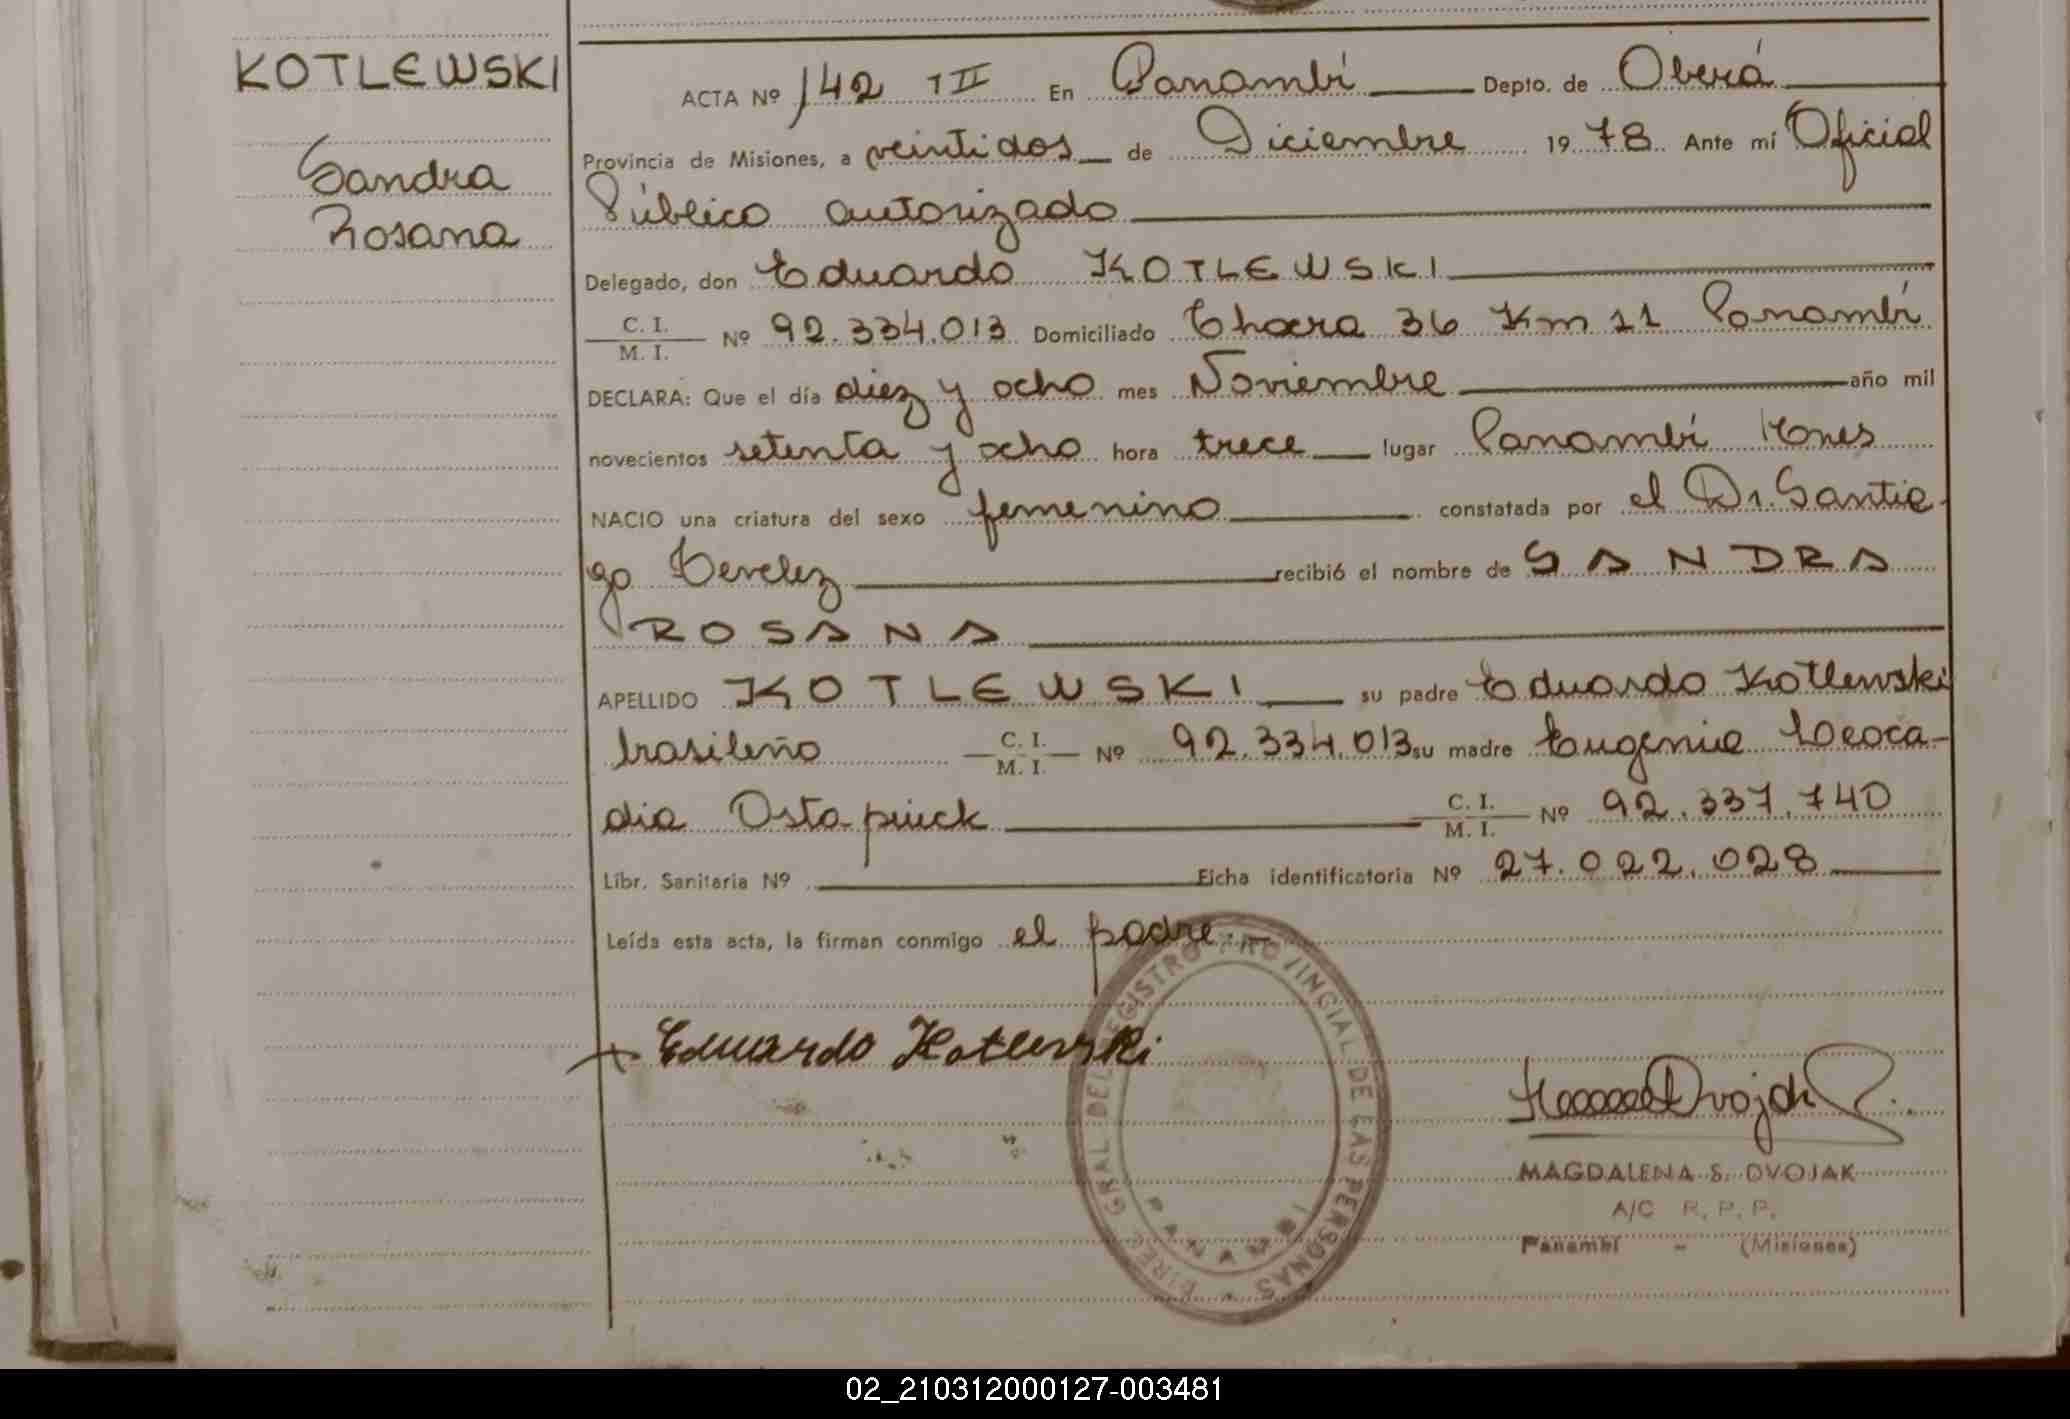 KOTLEWSKI
Sandra
Rosana
ACTA Nº 142 TII En Panambí Depto. de Oberá
Provincia de Misiones, a veintidos de Diciembre 1978 Ante mí Oficial
Público autorizado
Delegado, don Eduardo KOTLEWSKI
C. I. / M. I. Nº 92.334.013 Domiciliado Chacra 36 Km 11 Panambí
DECLARA: Que el día diez y ocho mes Noviembre año mil
novecientos setenta y ocho hora trece lugar Panambí Mnes
NACIO una criatura del sexo femenino constatada por el Dr. Santia-
go recibió el nombre de SANDRA
ROSANA
APELLIDO KOTLEWSKI su padre Eduardo Kotlewski
brasileño C. I. / M. I. Nº 92.334.013 su madre Eugenia Leoca-
dia Ostapiuck C. I. / M. I. Nº 92.337.740
Libr. Sanitaria Nº Ficha identificatoria Nº 27.022.028
Leída esta acta, la firman conmigo el padre.-
Eduardo Kotlewski
DIREC. GRAL. DEL REGISTRO PROVINCIAL DE LAS PERSONAS
PANAMBI
MAGDALENA S. DVOJAK
A/C R. P. P.
Panambí - (Misiones)
02_210312000127-003481